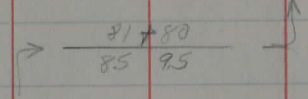 81 + 80
85 95